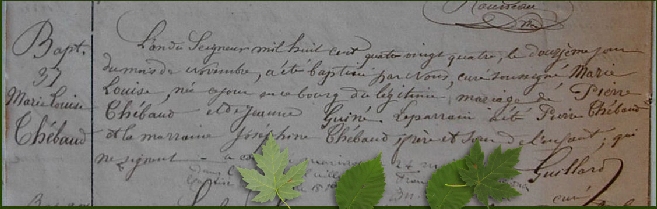 Rousseau
Bapt.
37
Marie Louise
Chébaud
L'an du Seigneur mil huit cent quatre vingt quatre, le douzième jour
du mois de novembre, a été baptisée par nous, curé soussigné Marie
Louise, née ce jour en ce bourg du légitime mariage de Pierre
Chébaud et de Jeanne Guiné. Le parrain a été Pierre Chébaud
et la marraine Joséphine Chébaud frère et sœur de l'enfant, qui
ne signent
Guillard
curé